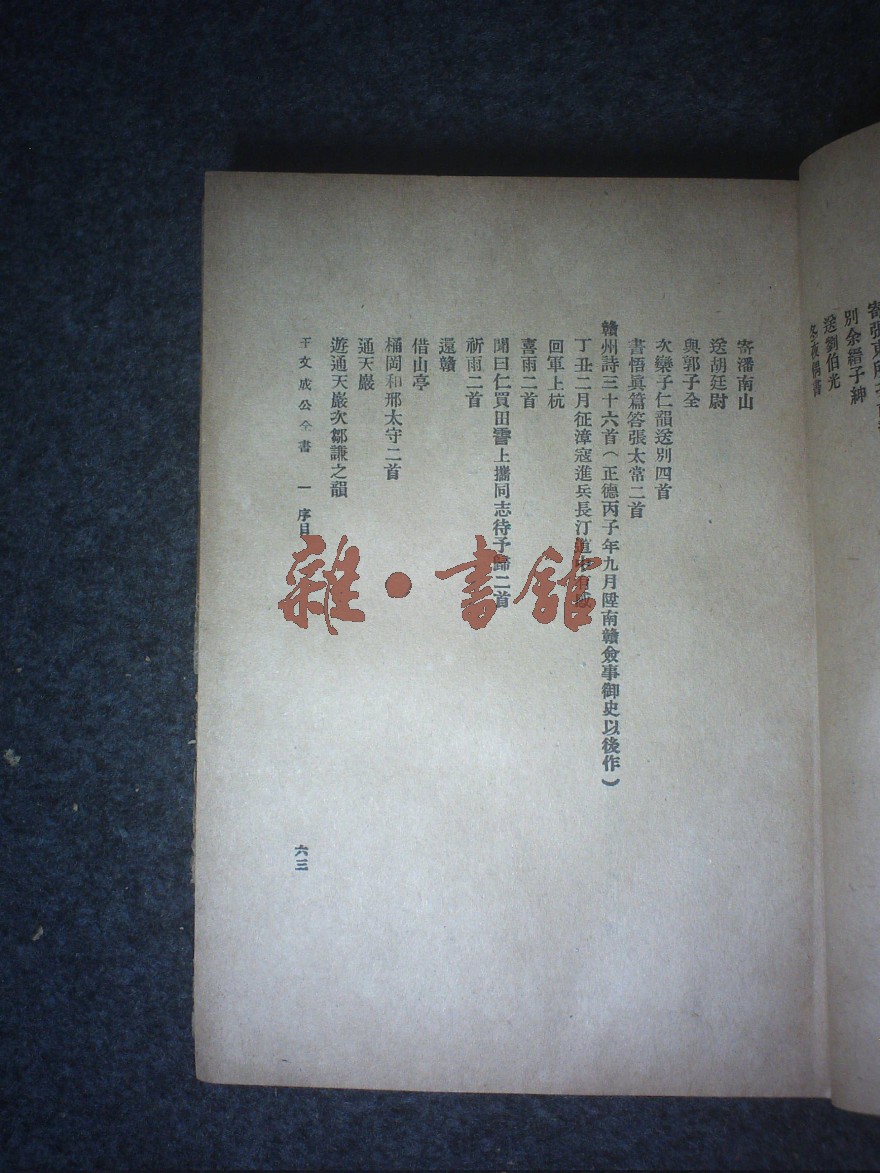 寄張東所
別余縉子紳
送劉伯光
冬夜偶書
寄潘南山
送胡廷尉
與郭子全
次欒子仁韻送別四首
書悟眞篇答張太常二首
贛州詩三十六首（正德丙子年九月陞南贛僉事御史以後作）
丁丑二月征漳寇進兵長汀道
回軍上杭
喜雨二首
聞曰仁買田霅上攜同志待予歸二首
祈雨二首
還贛
借山亭
桶岡和邢太守二首
通天巖
遊通天巖次鄒謙之韻
王文成公全書 一 序目
六三
雜·書館